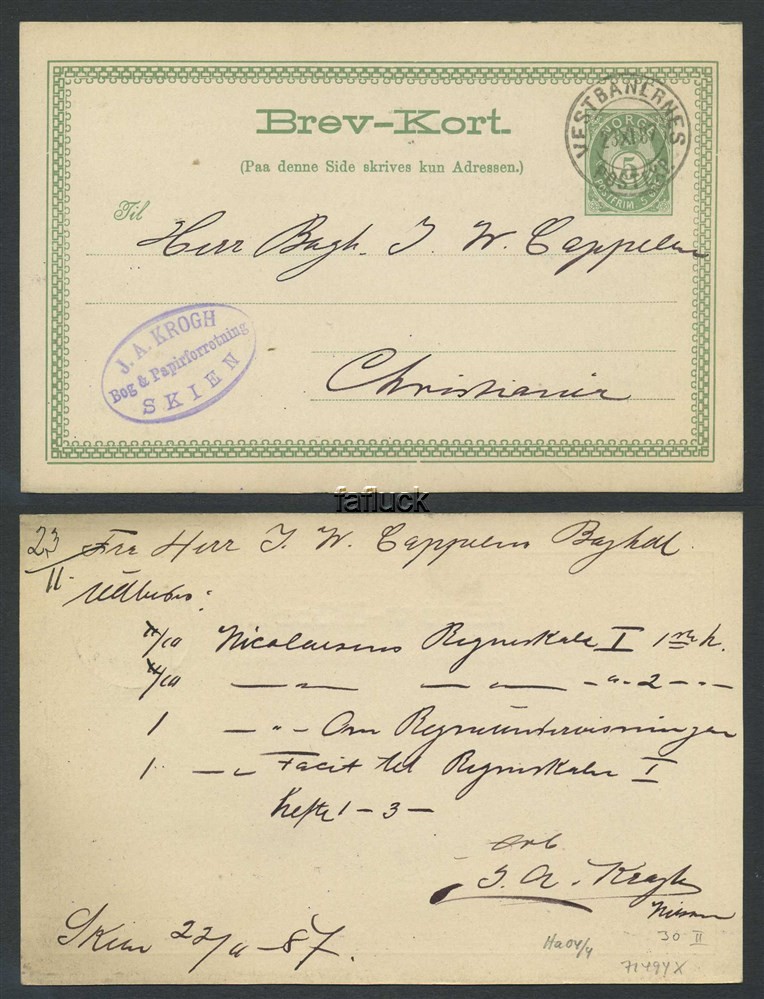 Brev-Kort.
(Paa denne Side skrives kun Adressen.)
VESTBANERNES
POSTEXP
23 XI 87
NORGE
5
POSTFRIM 5 ØRE
Til
Herr Bogh. J. W. Cappelen
Christiania
J. A. KROGH
Bog & Papirforretning
SKIEN
fafluck
23/11
Fra Herr J. W. Cappelens Boghdl.
Udbedes:
/10 Nicolaisens Regneskole I 1ste h.
/10 — „ — — „ — - „ - 2 - „ -
1 - „ - Om Regneundervisningen
1 - „ Facit til Regneskolen I
hefte 1 - 3 -
Erb.
J. A. Krogh
Skien 22/11 - 87.
Ha04/4
30 II
71494X